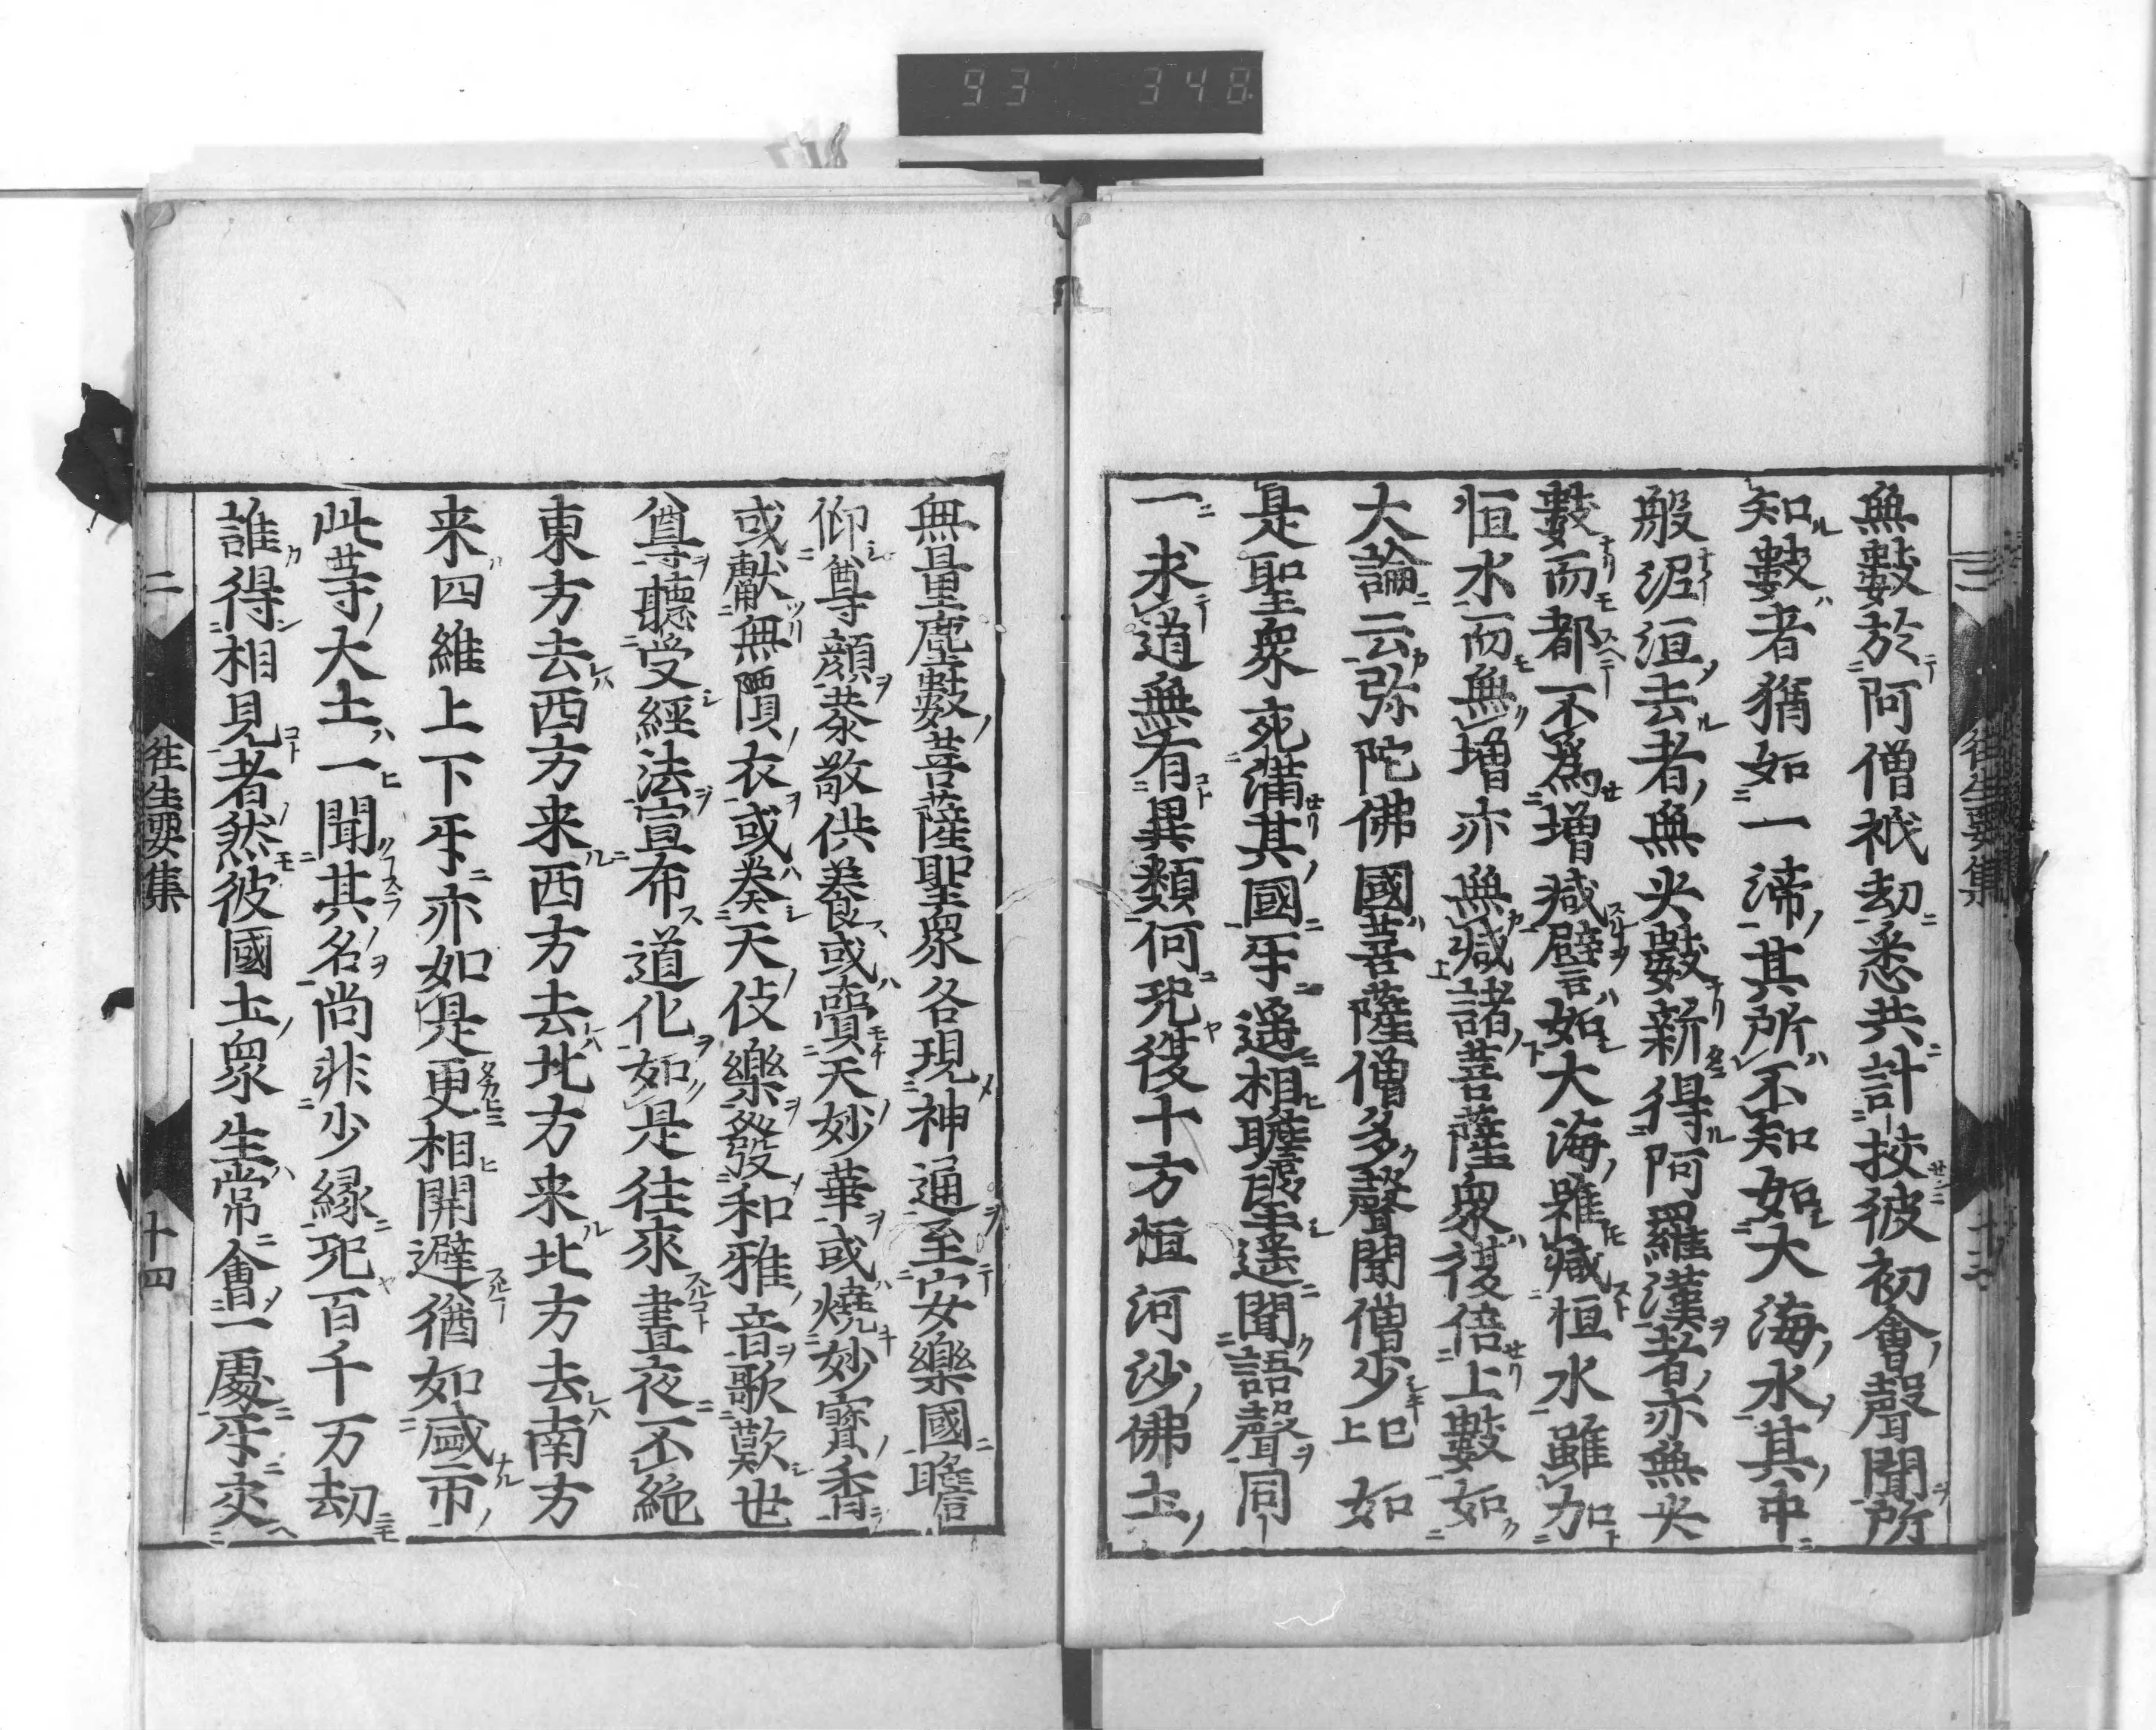 93 348
無數於阿僧祇劫悉共計挍彼初會聲聞所
知數者猶如一渧其所不知如大海水其中
般泥洹去者無央數新得阿羅漢者亦無央
數而都不爲増减譬如大海雖减恒水雖加
恒水而無増亦無减諸菩薩衆復倍上數如
大論云弥陀佛國菩薩僧多聲聞僧少已上如
是聖衆充滿其國互遥相瞻望遥聞語聲同
一求道無有異類何况復十方恒河沙佛土
二
往生要集
十三
無量塵數菩薩聖衆各現神通至安樂國瞻
仰尊顔恭敬供養或賷天妙華或燒妙寳香
或獻無價衣或奏天伎樂發和雅音歌歎世
尊聽受經法宣布道化如是往來晝夜不絶
東方去西方来西方去北方来北方去南方
来四維上下互亦如是更相開避猶如盛市
此等大士一聞其名尚非少縁况百千万劫
誰得相見者然彼國土衆生常會一處互交
二
往生要集
十四